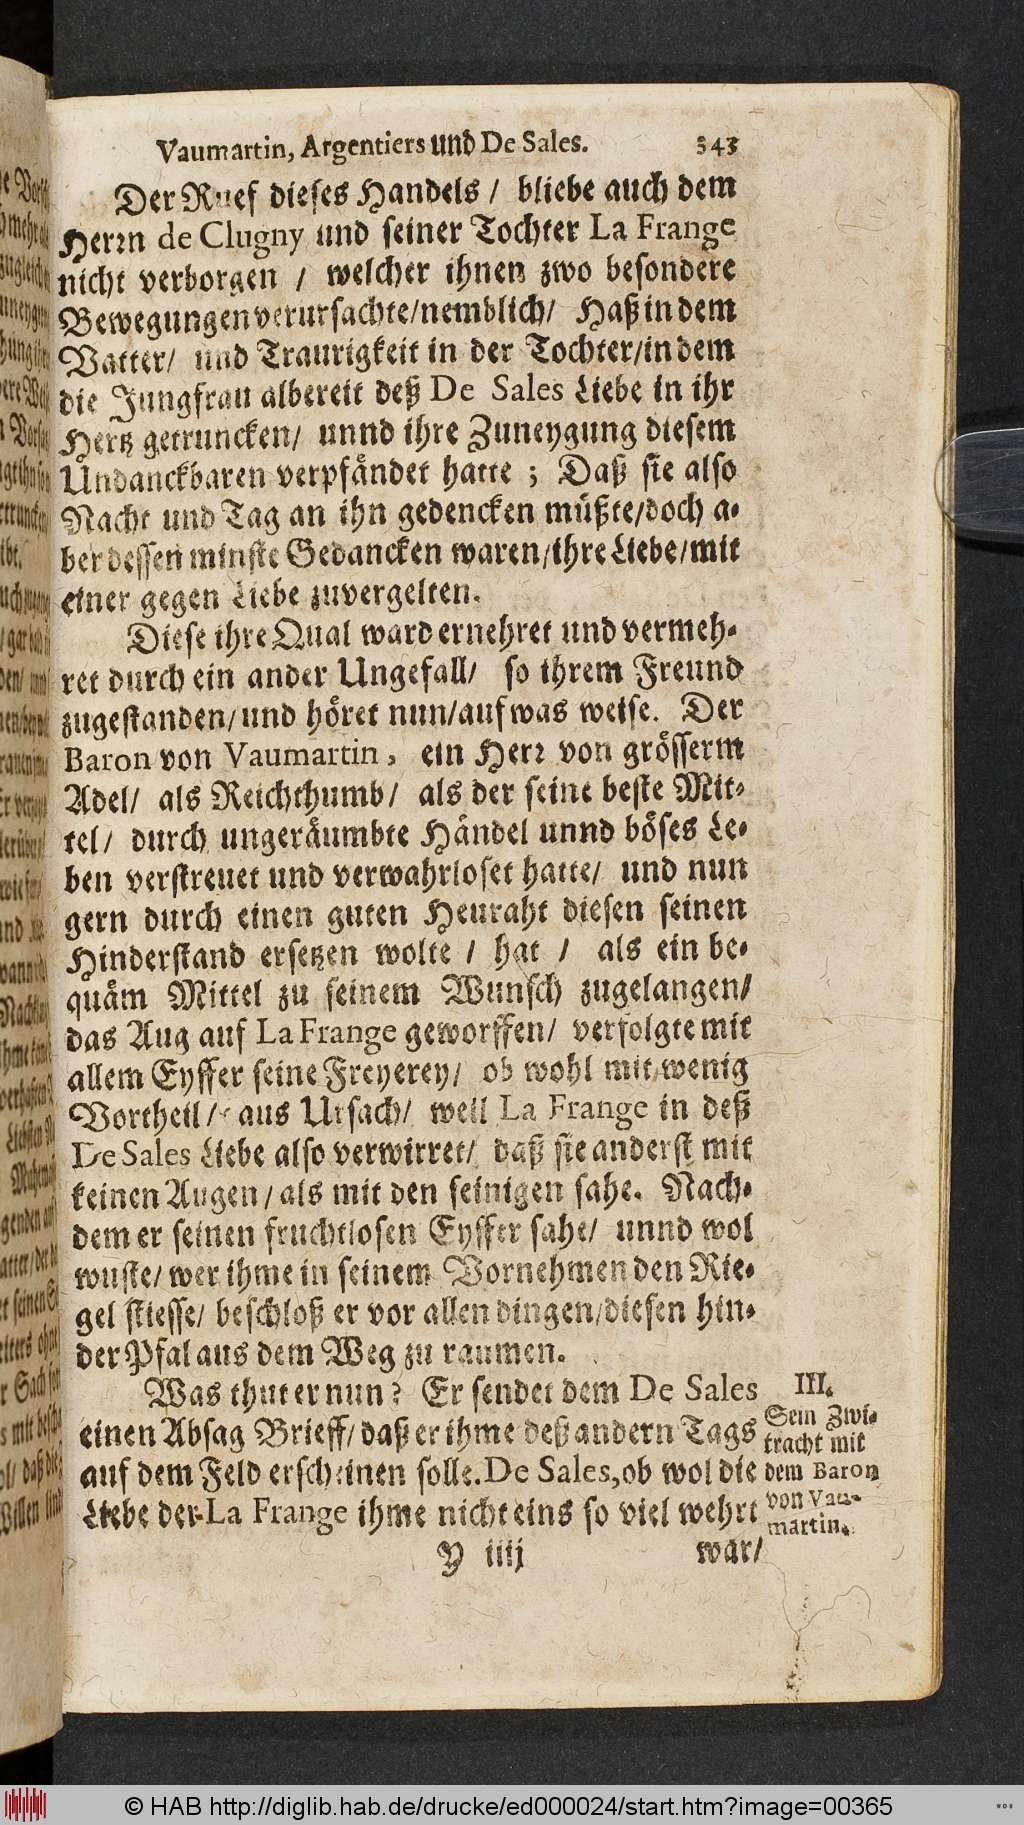 Vaumartin, Argentiers und De Sales. 343
Der Ruef dieses Handels / bliebe auch dem
Herrn de Clugny und seiner Tochter La Frange
nicht verborgen / welcher ihnen zwo besondere
Bewegungen verursachte/nemblich/ Haß in dem
Vatter/ und Traurigkeit in der Tochter/in dem
die Jungfrau albereit deß De Sales Liebe in ihr
Hertz getruncken/ unnd ihre Zuneygung diesem
Undanckbaren verpfändet hatte ; Daß sie also
Nacht und Tag an ihn gedencken müßte/doch a-
ber dessen minste Gedancken waren/ihre Liebe/mit
einer gegen Liebe zuvergelten.
Diese ihre Qual ward ernehret und vermeh-
ret durch ein ander Ungefall/ so ihrem Freund
zugestanden/und höret nun/auf was weise. Der
Baron von Vaumartin, ein Herr von grösserm
Adel/ als Reichthumb/ als der seine beste Mit-
tel/ durch ungeräumbte Händel unnd böses Le-
ben verstreuet und verwahrloset hatte/ und nun
gern durch einen guten Heuraht diesen seinen
Hinderstand ersetzen wolte / hat / als ein be-
quäm Mittel zu seinem Wunsch zugelangen/
das Aug auf La Frange geworffen/ verfolgte mit
allem Eyffer seine Freyerey/ ob wohl mit wenig
Vortheil/ aus Ursach/ weil La Frange in deß
De Sales Liebe also verwirret/ daß sie anderst mit
keinen Augen/als mit den seinigen sahe. Nach-
dem er seinen fruchtlosen Eyffer sahe/ unnd wol
wuste/wer ihme in seinem Vornehmen den Rie-
gel stiesse/ beschloß er vor allen dingen/diesen hin-
der Pfal aus dem Weg zu raumen.
Was thut er nun? Er sendet dem De Sales
einen Absag Brieff/daß er ihme deß andern Tags
auf dem Feld erscheinen solle. De Sales, ob wol die
Liebe der La Frange ihme nicht eins so viel wehrt
III.
Sein Zwi-
tracht mit
dem Baron
von Vau-
martin.
Y iiij war/
© HAB http://diglib.hab.de/drucke/ed000024/start.htm?image=00365